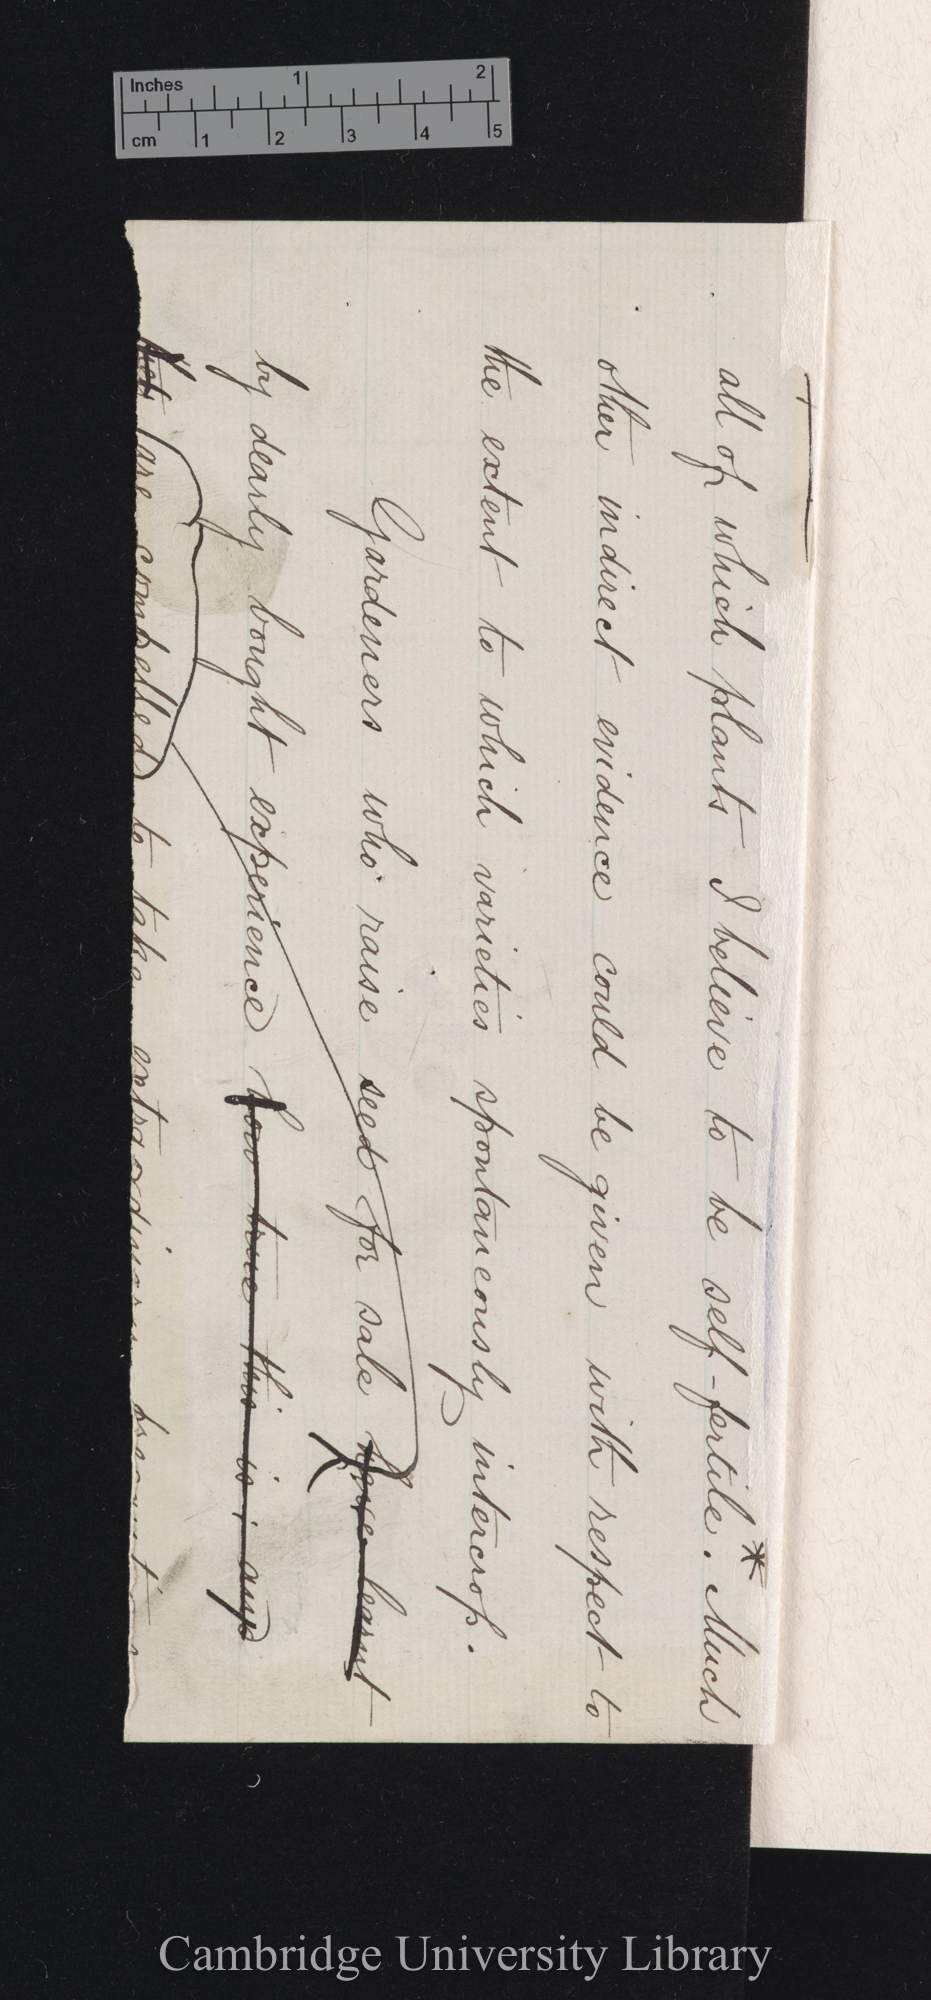 Inches 1 2
cm 1 2 3 4 5
all of which plants I believe to be self-fertile.* Much
other indirect evidence could be given with respect to
the extent to which varieties spontaneously intercross.
Gardeners who raise seed for sale have learnt
by dearly bought experience how true this is; any
are compelled to take extraordinary precautions
Cambridge University Library